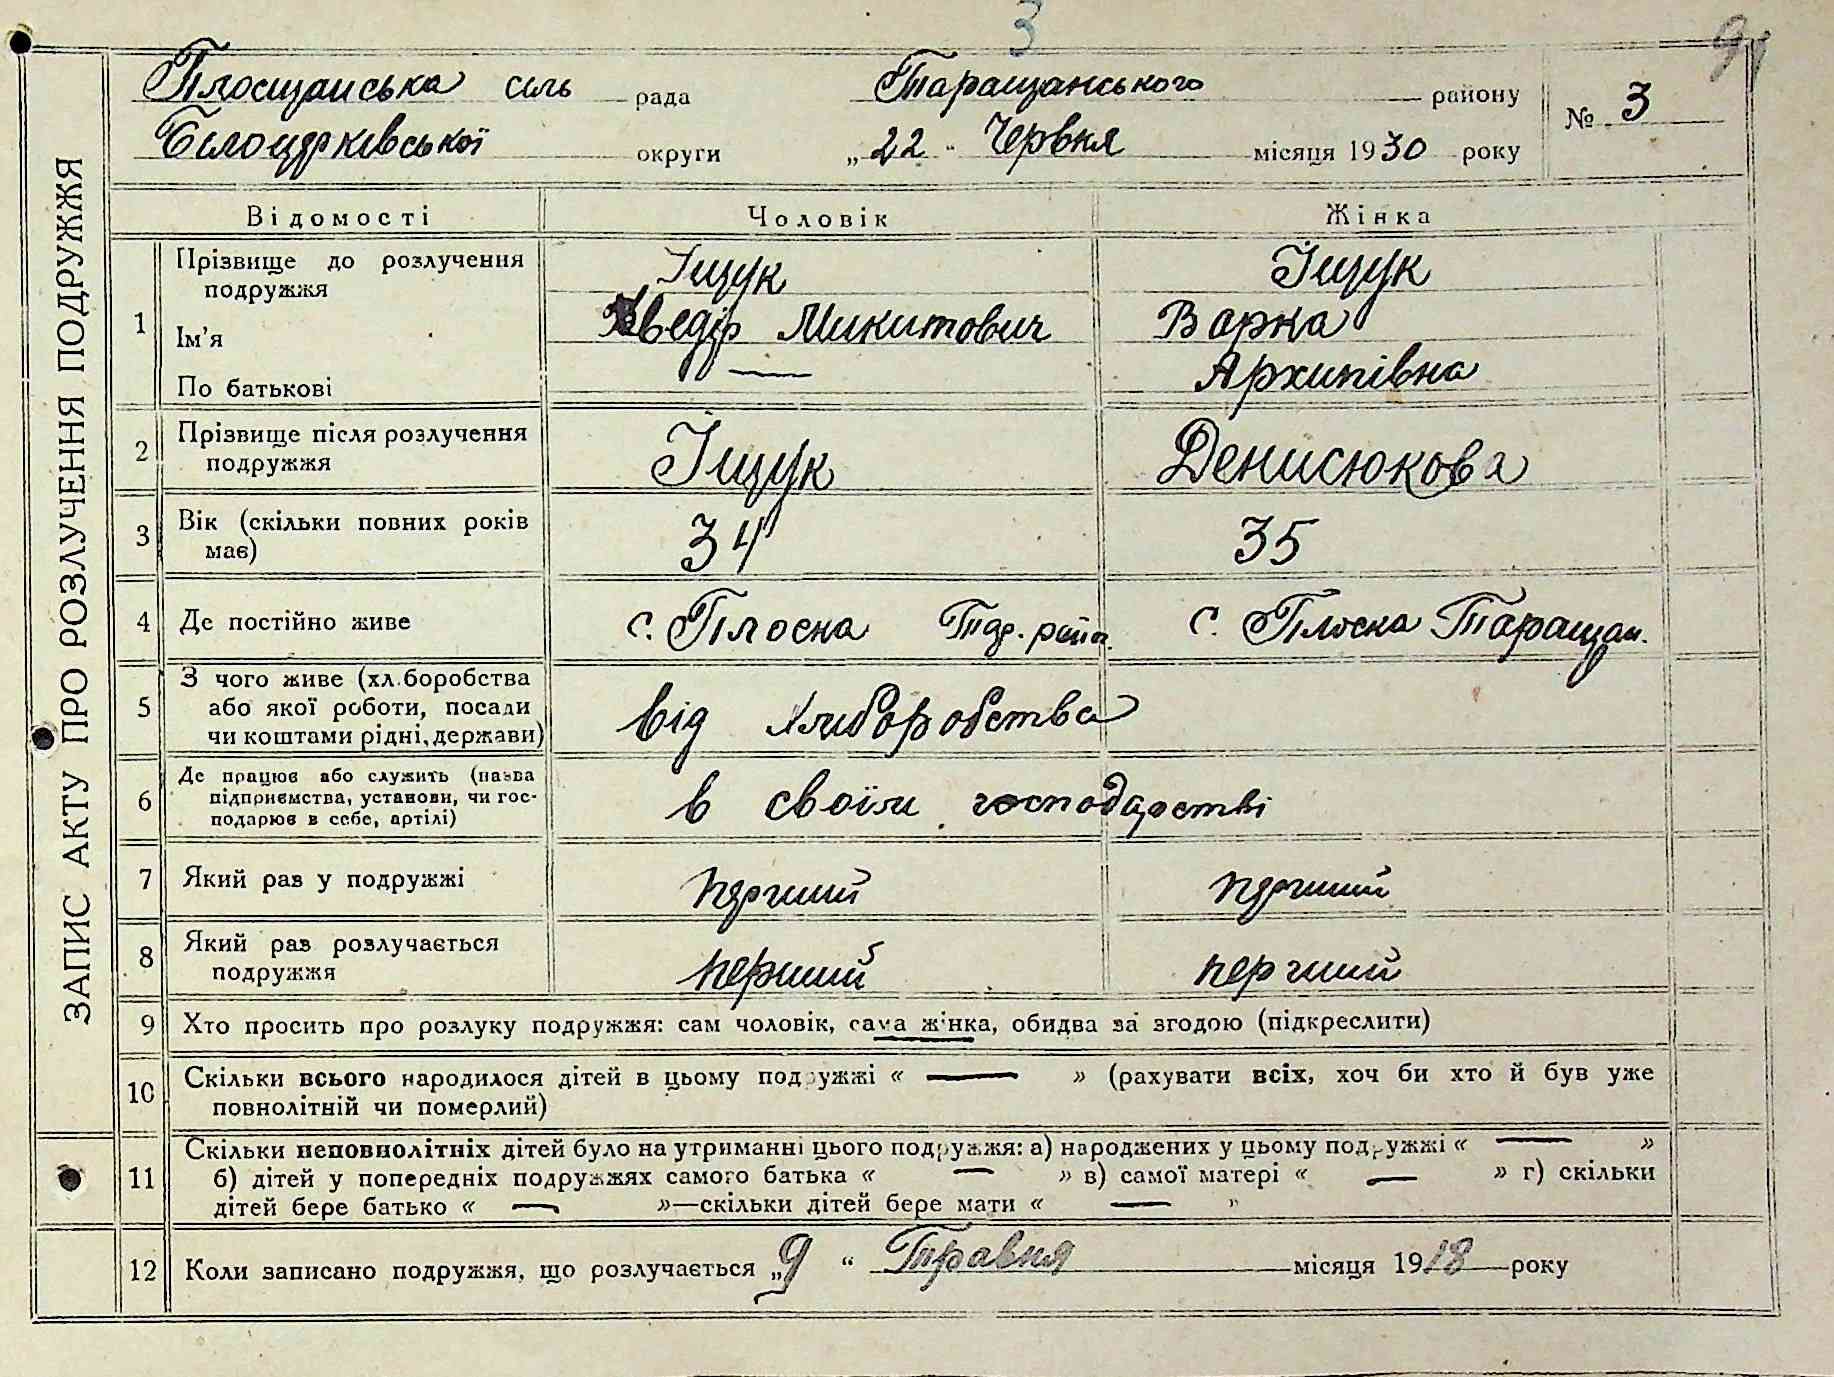 3
91
Плосщанська сіль рада Таращанського району № 3
Білоцерківської округи „ 22 " Червня місяця 1930 року
ЗАПИС АКТУ ПРО РОЗЛУЧЕННЯ ПОДРУЖЖЯ
Відомості Чоловік Жінка
1 Прізвище до розлучення подружжя Іщук Іщук
Ім'я Хведір Микитович Варка
По батькові — Архипівна
2 Прізвище після розлучення подружжя Іщук Денисюкова
3 Вік (скільки повних років має) 34 35
4 Де постійно живе с. Плоска Тар. райо. с. Плоска Таращан.
5 З чого живе (хл.боробства або якої роботи, посади чи коштами рідні, держави) від хліборобства
6 Де працює або служить (назва підприємства, установи, чи господарює в себе, артілі) в своїм господарстві
7 Який раз у подружжі перший перший
8 Який раз розлучається подружжя перший перший
9 Хто просить про розлуку подружжя: сам чоловік, сама жінка, обидва за згодою (підкреслити)
10 Скільки всього народилося дітей в цьому подружжі « — » (рахувати всіх, хоч би хто й був уже
повнолітній чи померлий)
11 Скільки неповнолітніх дітей було на утриманні цього подружжя: а) народжених у цьому подружжі « — »
б) дітей у попередніх подружжях самого батька « — » в) самої матері « — » г) скільки
дітей бере батько « — »—скільки дітей бере мати « — »
12 Коли записано подружжя, що розлучається „ 9 " Травня місяця 1918 року